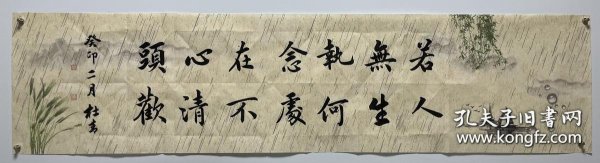 若人
無生
執何
念處
在不
心清
頭歡
癸卯二月杜青
孔夫子旧书网
www.kongfz.com